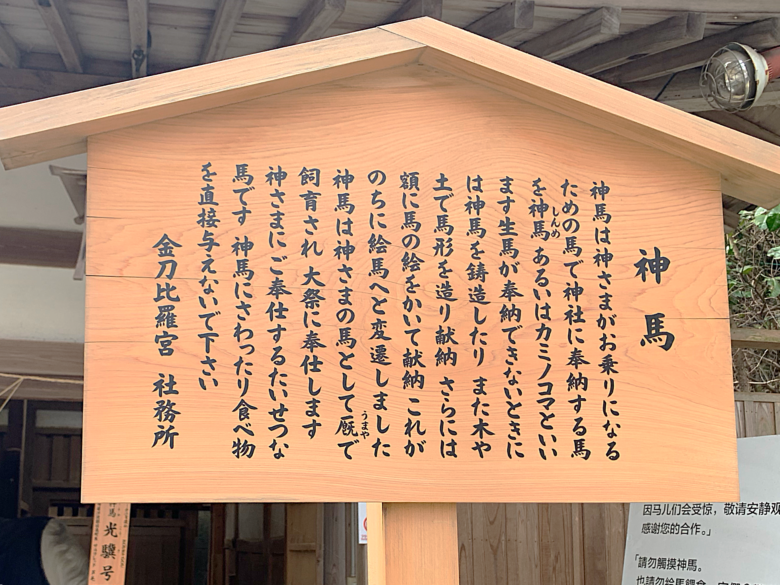 神馬
神馬は神さまがお乗りになる
ための馬で神社に奉納する馬
を神馬 あるいはカミノコマといい
しんめ
ます生馬が奉納できないときに
は神馬を鋳造したり また木や
土で馬形を造り献納 さらには
額に馬の絵をかいて献納 これが
のちに絵馬へと変遷しました
神馬は神さまの馬として厩で
うまや
飼育され 大祭に奉仕します
神さまにご奉仕するたいせつな
馬です 神馬にさわったり食べ物
を直接与えないで下さい
金刀比羅宮 社務所
神馬 光驥号
因马儿们会受惊，敬请安静观
感谢您的合作。」
「請勿觸摸神馬。